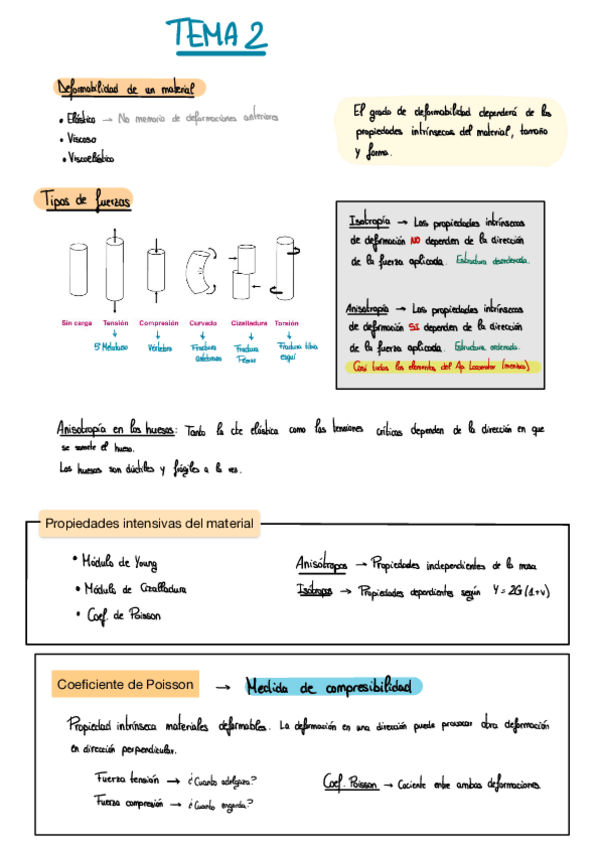 TEMA 2
Deformabilidad de un material
• Elástico → No memoria de deformaciones anteriores
• Viscoso
• Viscoelástico
El grado de deformabilidad dependerá de las
propiedades intrínsecas del material, tamaño
y forma.
Tipos de fuerzas
Sin carga Tensión Compresión Curvado Cizalladura Torsión
5º Metatarso Vértebra Fractura Fractura Fractura tibia
Fémur esquí
Isotropía → Las propiedades intrínsecas
de deformación NO dependen de la dirección
de la fuerza aplicada. Estructura desordenada.
Anisotropía → Las propiedades intrínsecas
de deformación SI dependen de la dirección
de la fuerza aplicada. Estructura ordenada.
Casi todos los elementos del Ap. Locomotor (menisco)
Anisotropía en los huesos: Tanto la cte elástica como las tensiones críticas dependen de la dirección en que
se somete el hueso.
Los huesos son dúctiles y frágiles a la vez.
Propiedades intensivas del material
• Módulo de Young
• Módulo de Cizalladura
• Coef. de Poisson
Anisótropos → Propiedades independientes de la masa
Isótropos → Propiedades dependientes según Y = 2G (1+v)
Coeficiente de Poisson → Medida de compresibilidad
Propiedad intrínseca materiales deformables. La deformación en una dirección puede provocar otra deformación
en dirección perpendicular.
Fuerza tensión → ¿Cuanto adelgaza?
Fuerza compresión → ¿Cuanto engorda?
Coef. Poisson → Cociente entre ambas deformaciones